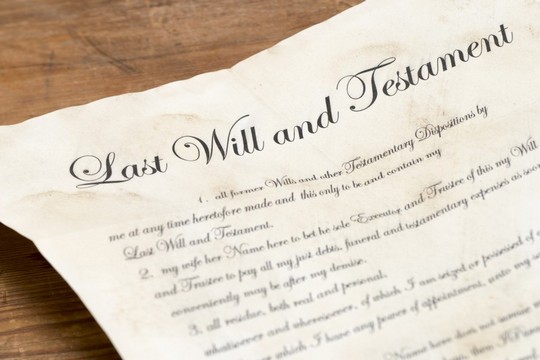 Last Will and Testament
1. all former Wills and other Testamentary Dispositions by
me at any time heretofore made and this only to be and contain my
Last Will and Testament.
2. my wife her Name here to bet he sole Executor and Trustee of this my Will
and Trustee to pay all my just debts, funeral and testamentary expenses as soon
conveniently may be after my demise.
3. all residue, both real and personal,
whatsoever and wheresoever, of which I am seized or possessed of o
which I have any power of appointment, unto my
Name here does not survive